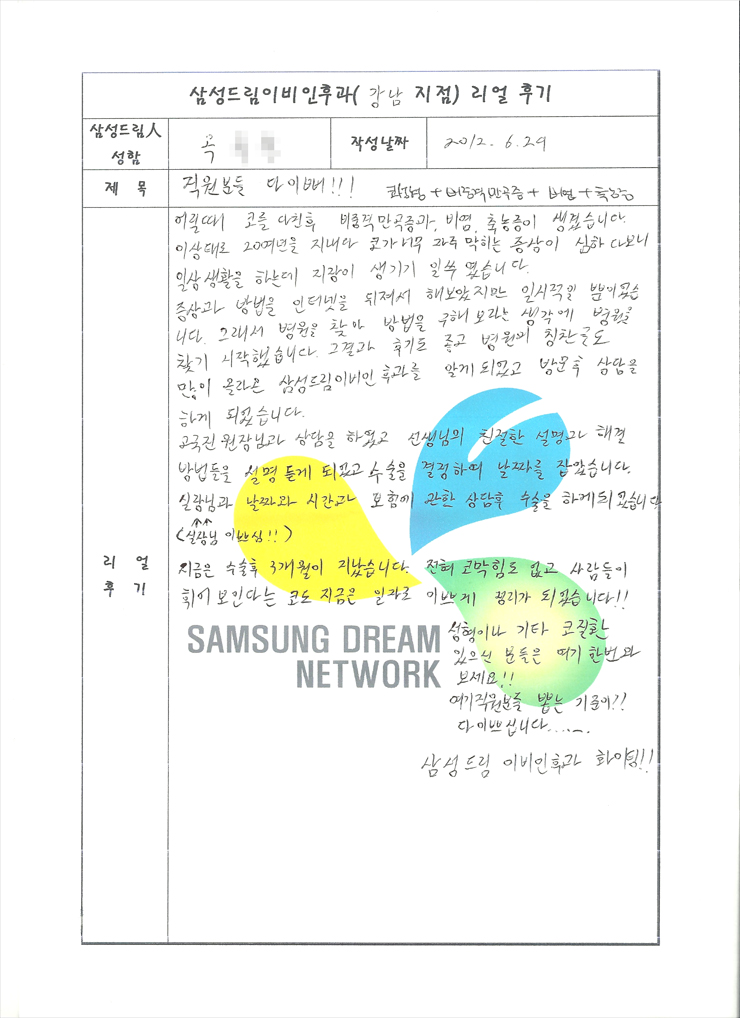 삼성드림이비인후과( 강남 지점) 리얼 후기
삼성드림人 성함
옥
작성날짜
2012. 6. 29
제 목
직원분들 다 이뻐!!!
코성형 + 비중격만곡증 + 비염 + 축농증
리 얼 후 기
어릴때 코를 다친후 비중격만곡증과, 비염, 축농증이 생겼습니다.
이상태로 20여년을 지내다 코가 너무 자주 막히는 증상이 심하다보니
일상생활을 하는데 지장이 생기기 일쑤 였습니다.
증상과 방법을 인터넷을 뒤져서 해보았지만 일시적일 뿐이였습
니다. 그래서 병원을 찾아 방법을 구해 보라는 생각에 병원을
찾기 시작했습니다. 그결과 후기도 좋고 병원의 칭찬글도
많이 올라온 삼성드림이비인후과를 알게 되었고 방문후 상담을
하게 되었습니다.
고국진 원장님과 상담을 하였고 선생님의 친절한 설명과 해결
방법들을 설명 듣게 되었고 수술을 결정하여 날짜를 잡았습니다.
실장님과 날짜와 시간과 보험에 관한 상담후 수술을 하게되었습니다
(실장님 이쁘심!!)
지금은 수술후 3개월이 지났습니다. 전혀 코막힘도 없고 사람들이
휘어 보인다는 코도 지금은 일자로 이쁘게 정리가 되었습니다!!
성형이나 기타 코질환
있으신 분들은 여기 한번와
보세요!!
여기직원분들 뽑는 기준이??
다 이쁘십니다......
삼성드림 이비인후과 화이팅!!
SAMSUNG DREAM
NETWORK